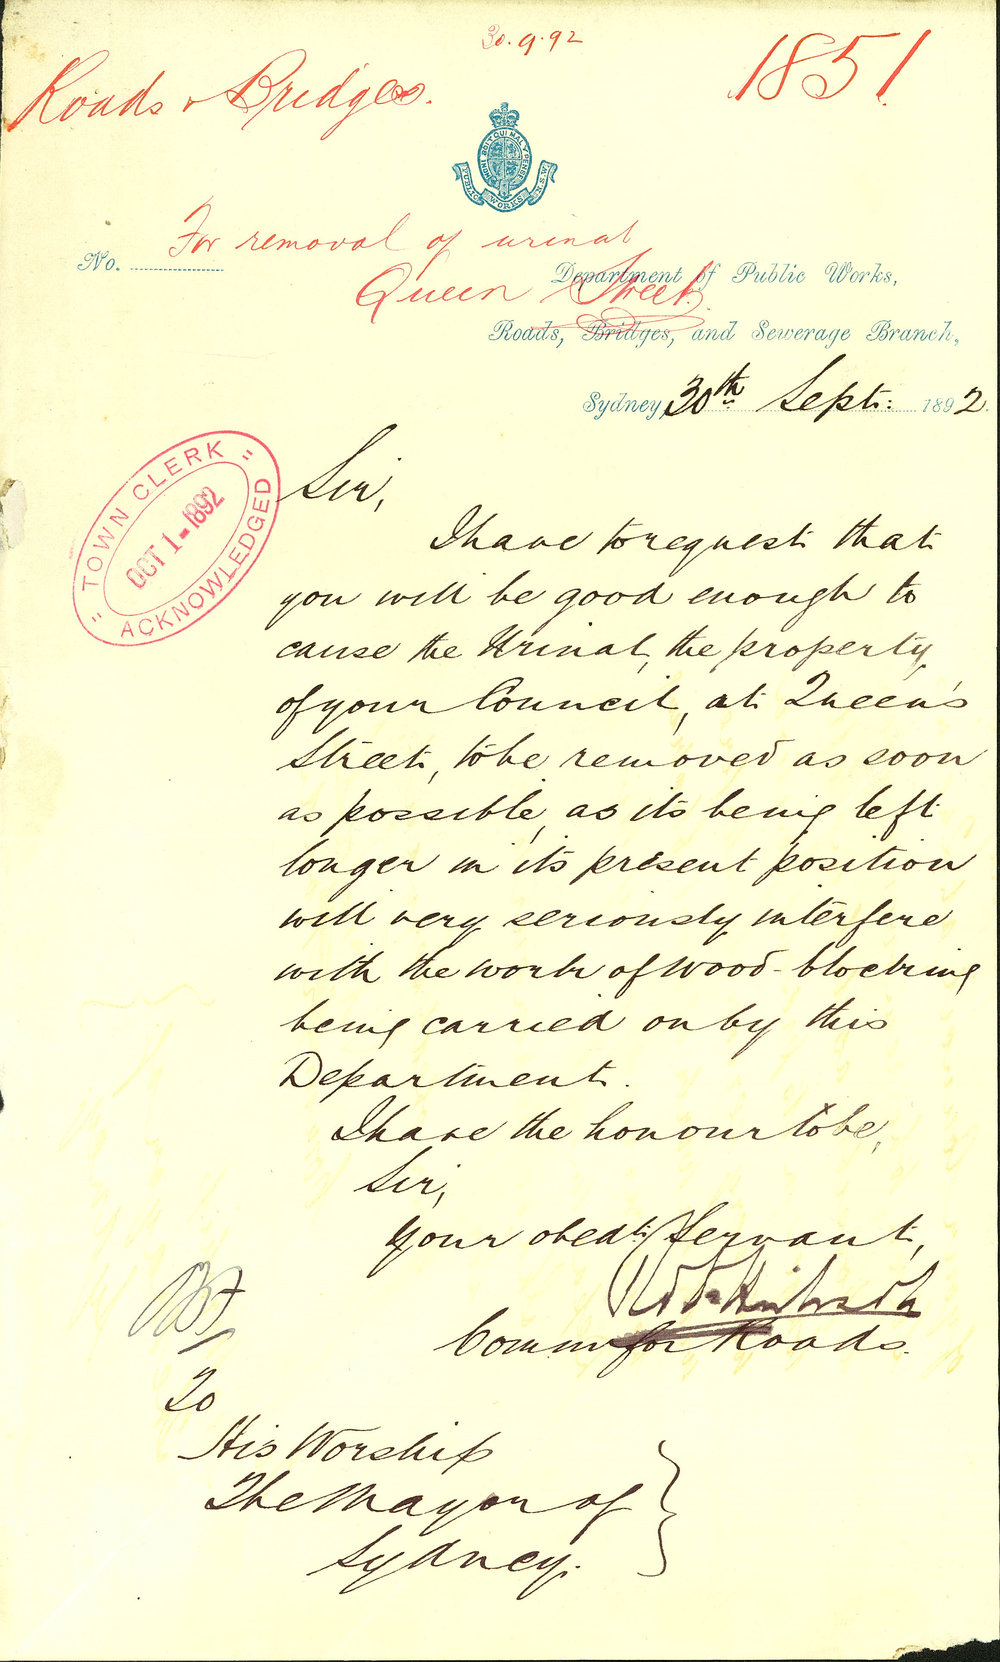 30.9.92
Roads & Bridges.
1851
HONI SOIT QUI MAL Y PENSE
PUBLIC WORKS N.S.W.
For removal of urinal
No.
Queen Street.
Department of Public Works,
Roads, Bridges, and Sewerage Branch,
Sydney, 30th Sept: 1892.
"TOWN CLERK"
OCT 1-1892
ACKNOWLEDGED
Sir,
I have to request that
you will be good enough to
cause the Urinal, the property
of your Council, at Queen's
Street, to be removed as soon
as possible, as its being left
longer in its present position
will very seriously interfere
with the work of wood-blocking
being carried on by this
Department.
I have the honour to be,
Sir,
Your obedt. Servant,
Commr for Roads.
To
His Worship
The Mayor of
Sydney.